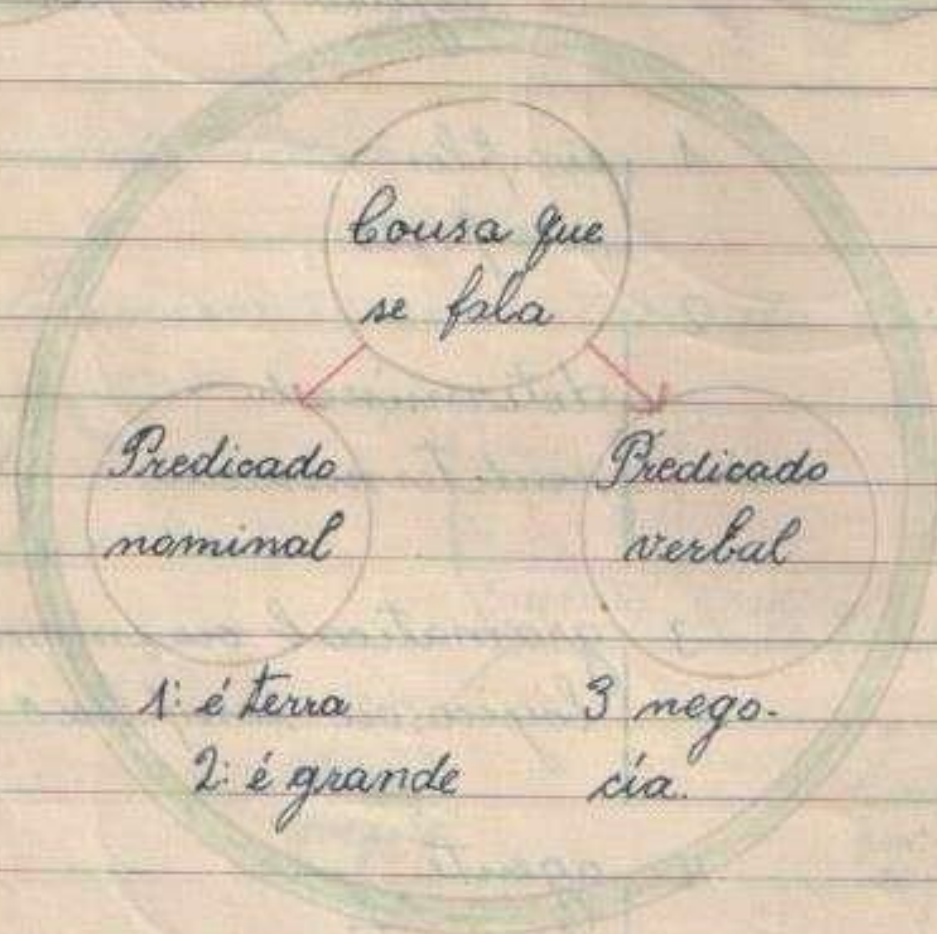 Cousa que
se fala
Predicado
nominal
Predicado
verbal
1: é terra
2: é grande
3 nego-
cía.